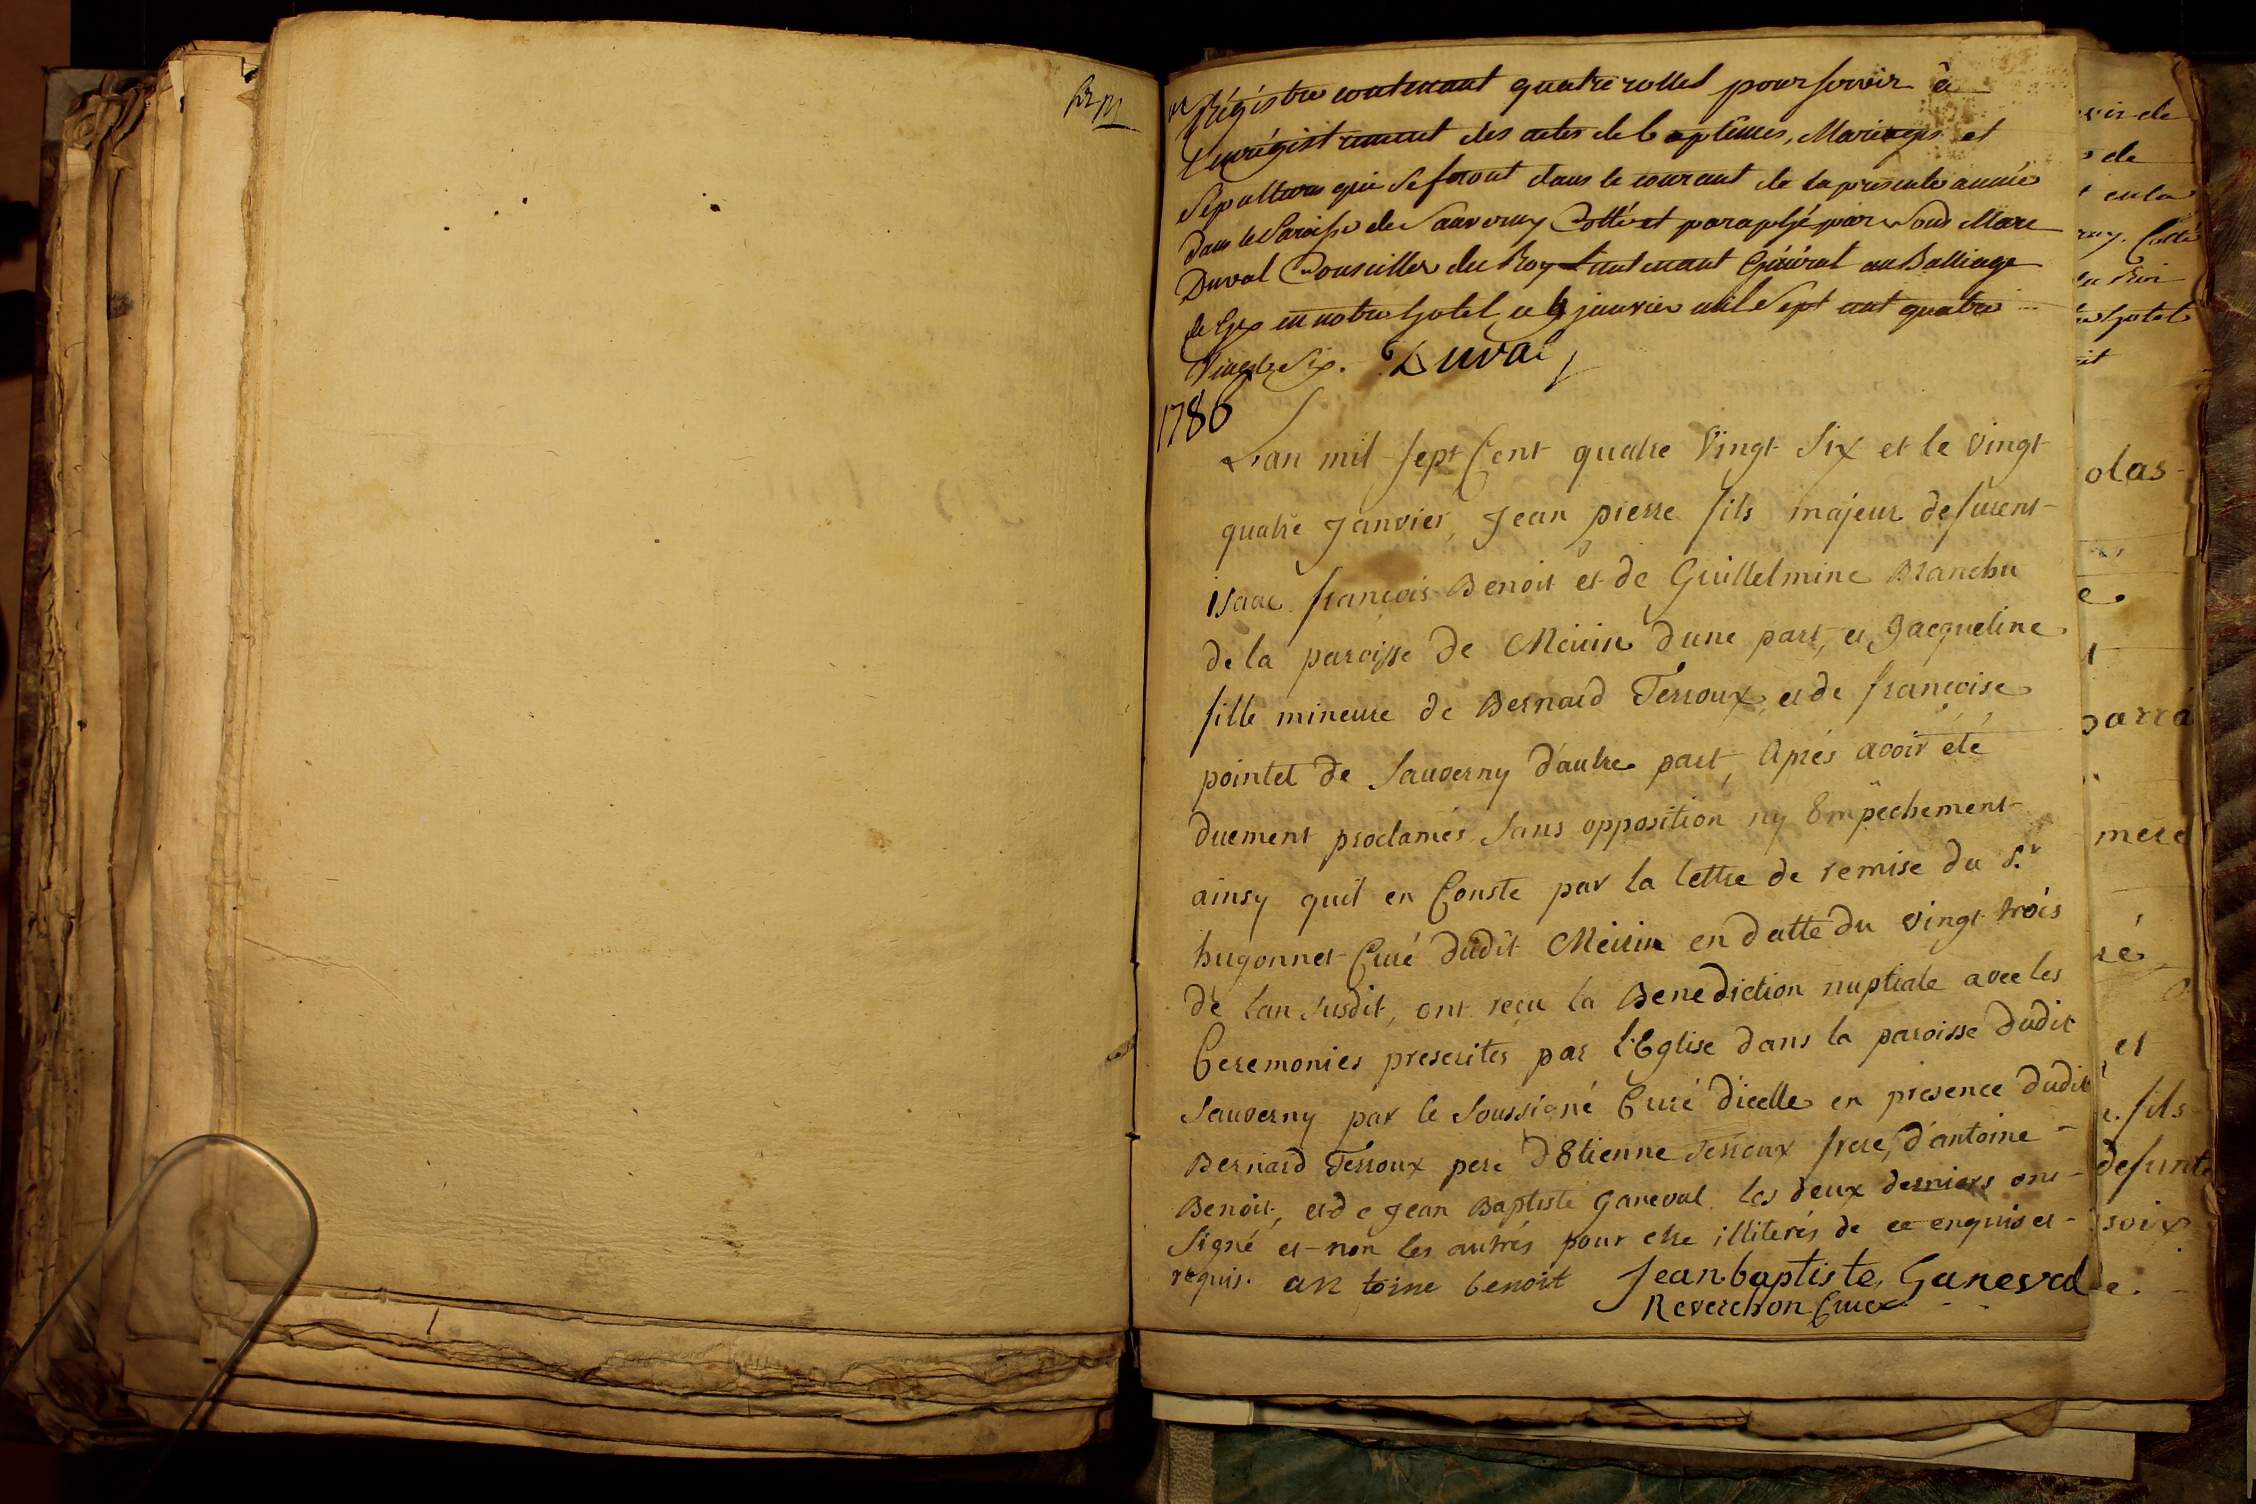 Régistre contenant quatre rolles pour servir à
l'enrégistrement des actes de baptêmes, Mariages et
Sépultures qui se feront dans le courant de la presente année
dans la Paroisse de Sauverny Cotté et paraphé par Nous Marc
Duval Conseiller du Roy Lieutenant Général au Balliage
de Gex en notre hotel ce 4 janvier mil sept cent quatre
Vingt Six. Duval
1786
Lan mil sept Cent quatre Vingt Six et le Vingt
quatre Janvier, Jean pierre fils majeur defunt
isaac françois Benoit et de Guillelmine Branchu
de la paroisse de Meirin dune part, et Jacqueline
fille mineure de Bernard Terroux, et de françoise
pointet de Sauverny d'autre part, Aprés avoir été
duement proclamés sans opposition ny Empechement
ainsy quil en Conste par la lettre de remise du S.r
hugonnet Curé dudit Meirin en datte du vingt trois
de lan susdit, ont reçu la Benediction nuptiale avec les
Ceremonies prescrites par l'Eglise dans la paroisse dudit
Sauverny par le soussigné Curé dicelle en presence dudit
Bernard Terroux pere d'Etienne Terroux frere, d'antoine
Benoit, et de Jean Baptiste Ganeval les deux derniers ont
Signé et non les autres pour etre illiterés de ce enquis et
requis. an toine benoit Jean baptiste Ganeval
Reverchon Curé
vir de
de
en la
Cotté
du Roi
hotel
olas
mere
et
fils
defunte